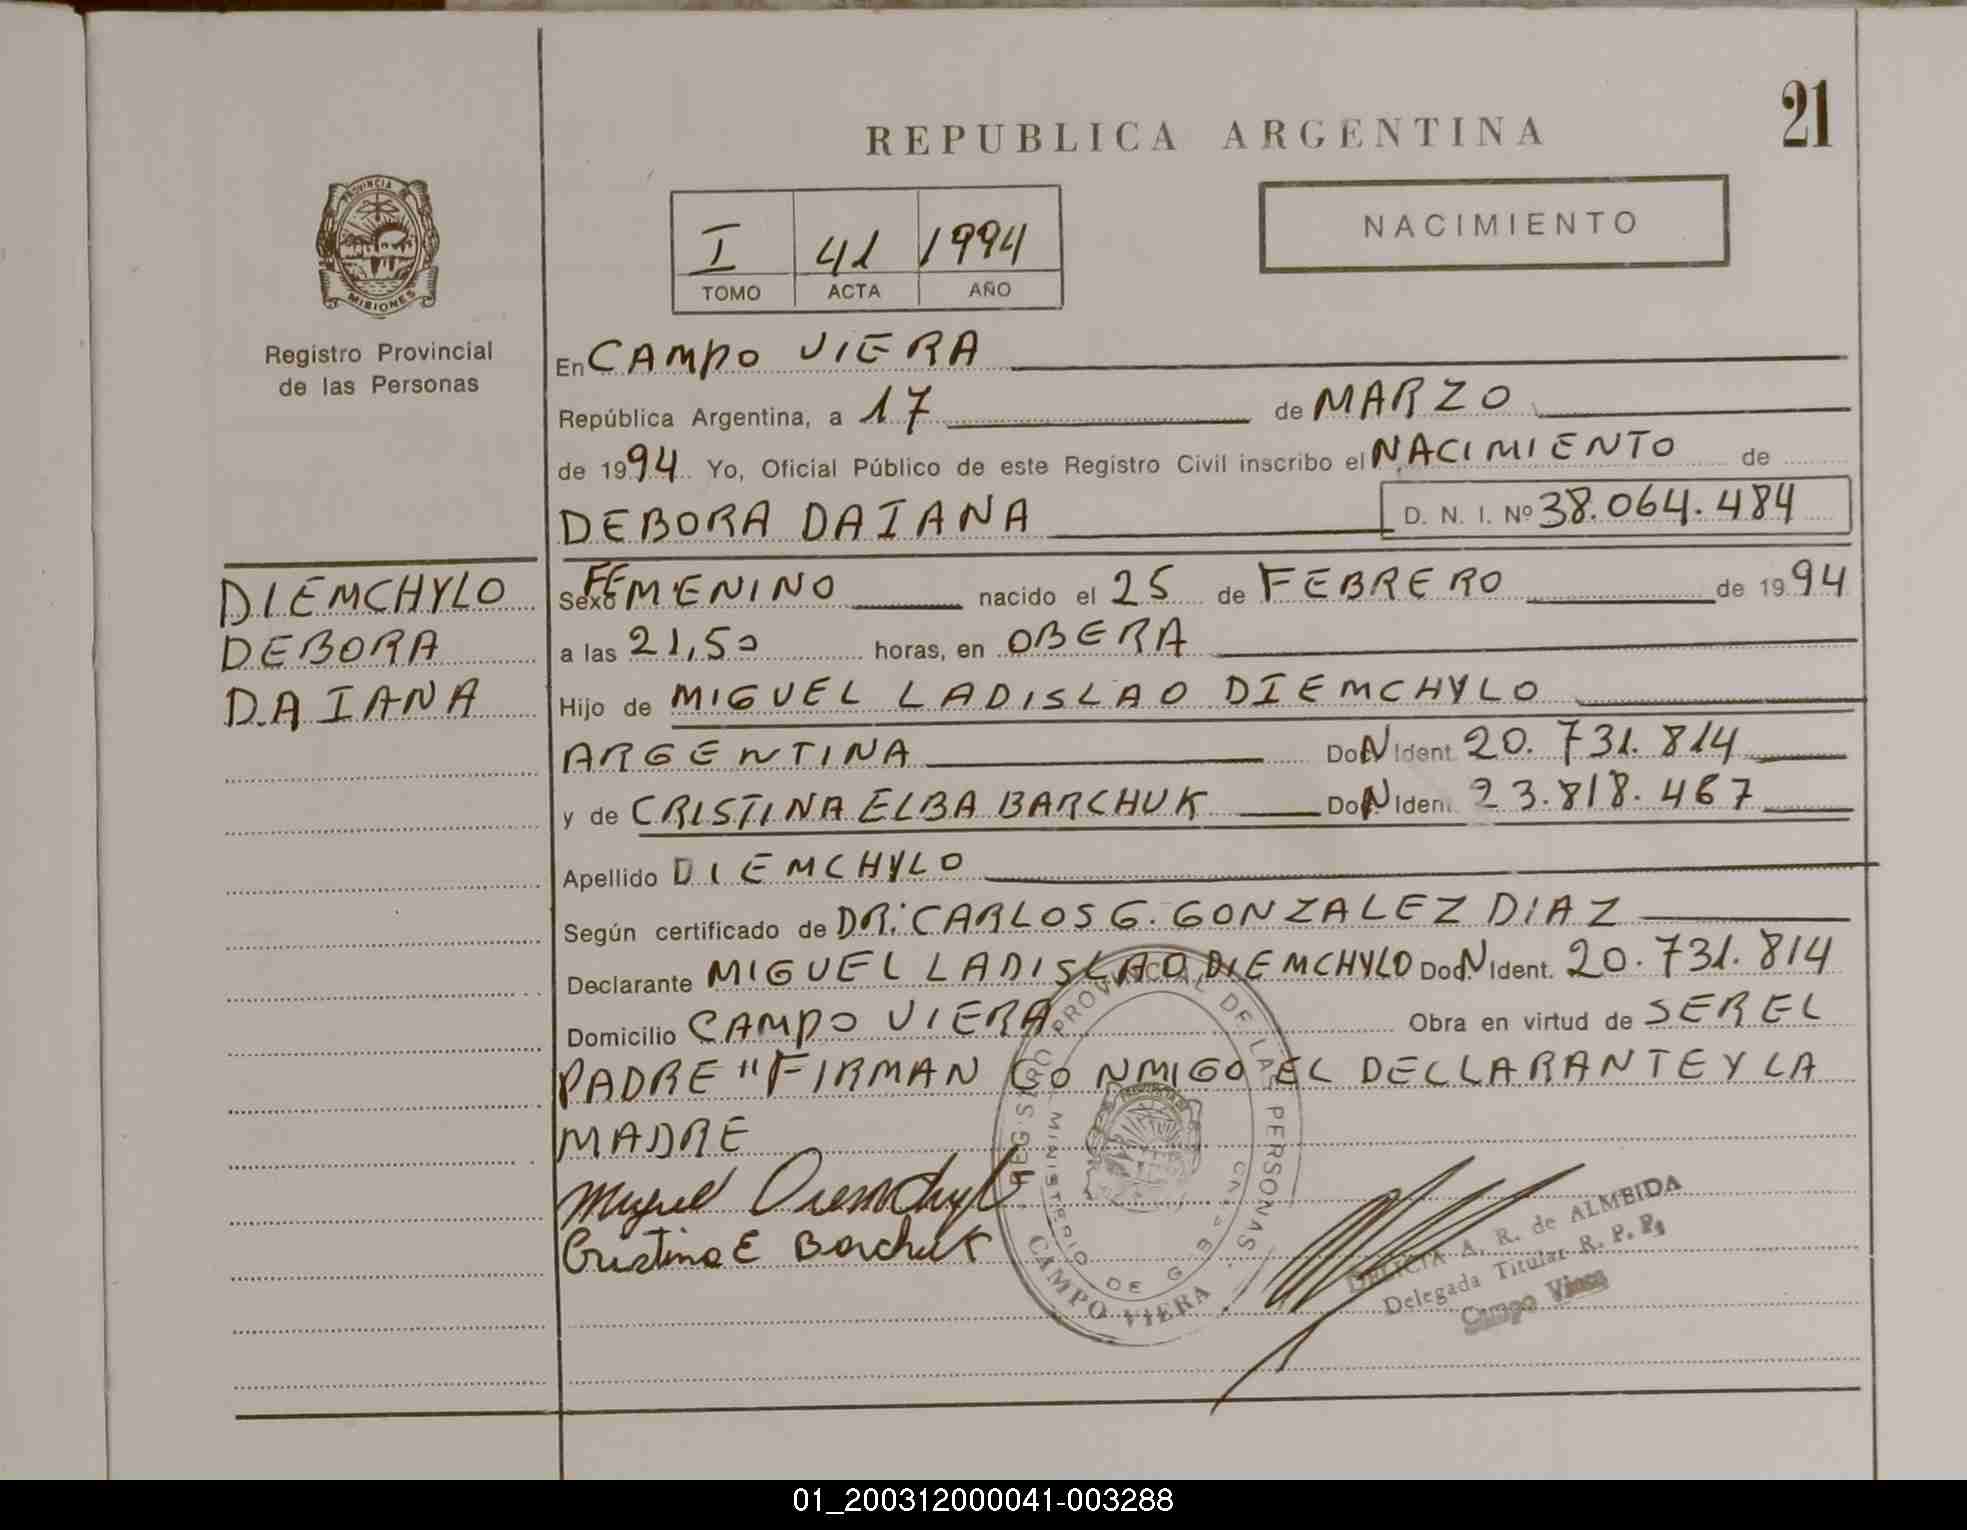 21
REPUBLICA ARGENTINA
PROVINCIA
MISIONES
Registro Provincial
de las Personas
I 41 1994
TOMO ACTA AÑO
NACIMIENTO
En CAMPO VIERA
República Argentina, a 17 de MARZO
de 1994 Yo, Oficial Público de este Registro Civil inscribo el NACIMIENTO de
DEBORA DAIANA D. N. I. Nº 38.064.484
DIEMCHYLO
DEBORA
DAIANA
Sexo FEMENINO nacido el 25 de FEBRERO de 1994
a las 21,50 horas, en OBERA
Hijo de MIGUEL LADISLAO DIEMCHYLO
ARGENTINA Ident. 20.731.814
y de CRISTINA ELBA BARCHUK Iden. 23.818.467
Apellido DIEMCHYLO
Según certificado de DR. CARLOS G. GONZALEZ DIAZ
Declarante MIGUEL LADISLAO DIEMCHYLO Ident. 20.731.814
Domicilio CAMPO VIERA Obra en virtud de SER EL
PADRE "FIRMAN CONMIGO EL DECLARANTE Y LA
MADRE
Miguel Diemchyl
Cristina E Barchuk
REGISTRO PROVINCIAL DE LAS PERSONAS
MINISTERIO DE
CAMPO VIERA
DELICIA A. R. de ALMEIDA
Delegada Titular R. P. P.
Campo Viera
01_200312000041-003288